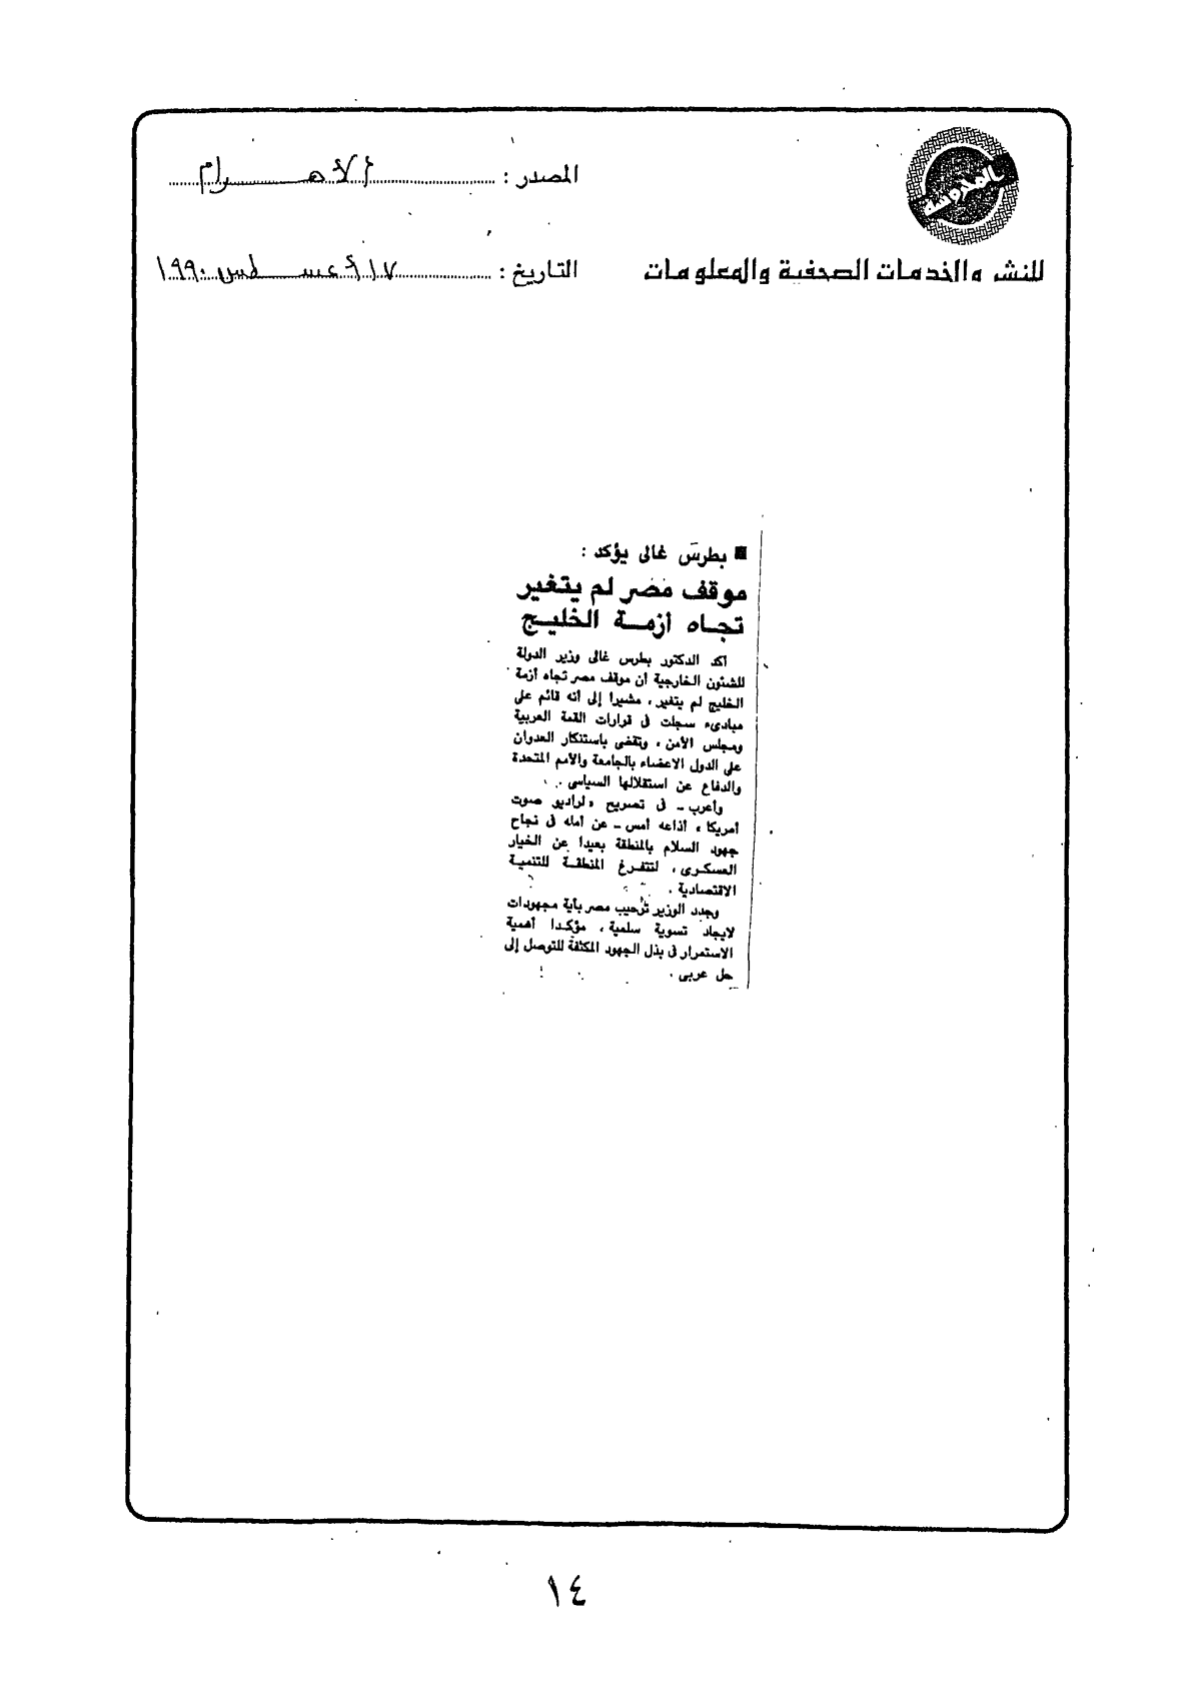 المصدر : الأهرام
للنشر والخدمات الصحفية والمعلومات
التاريخ : ١٧ أغسطس ١٩٩٠
■ بطرس غالى يؤكد :
موقف مصر لم يتغير
تجاه أزمة الخليج
اكد الدكتور بطرس غالى وزير الدولة
للشئون الخارجية أن موقف مصر تجاه أزمة
الخليج لم يتغير ، مشيرا إلى أنه قائم على
مبادىء سجلت فى قرارات القمة العربية
ومجلس الأمن ، وتقضى باستنكار العدوان
على الدول الاعضاء بالجامعة والأمم المتحدة
والدفاع عن استقلالها السياسى .
وأعرب ـ فى تصريح « لراديو صوت
أمريكا ، أذاعه أمس ـ عن أمله فى نجاح
جهود السلام بالمنطقة بعيدا عن الخيار
العسكرى ، لتتفرغ المنطقة للتنمية
الاقتصادية .
وجدد الوزير ترحيب مصر بأية مجهودات
لايجاد تسوية سلمية ، مؤكدا أهمية
الاستمرار فى بذل الجهود المكثفة للتوصل إلى
حل عربى .
١٤